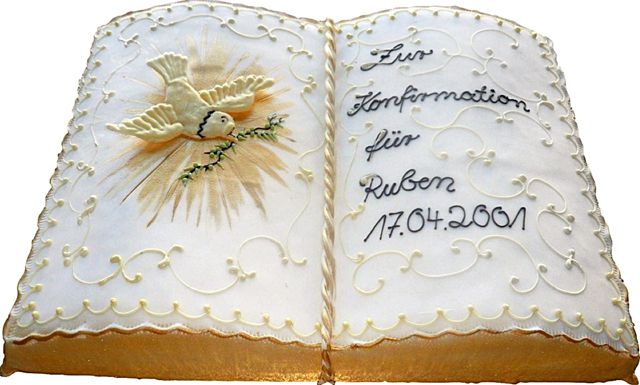 Zur
Konfirmation
für
Ruben
17.04.2001